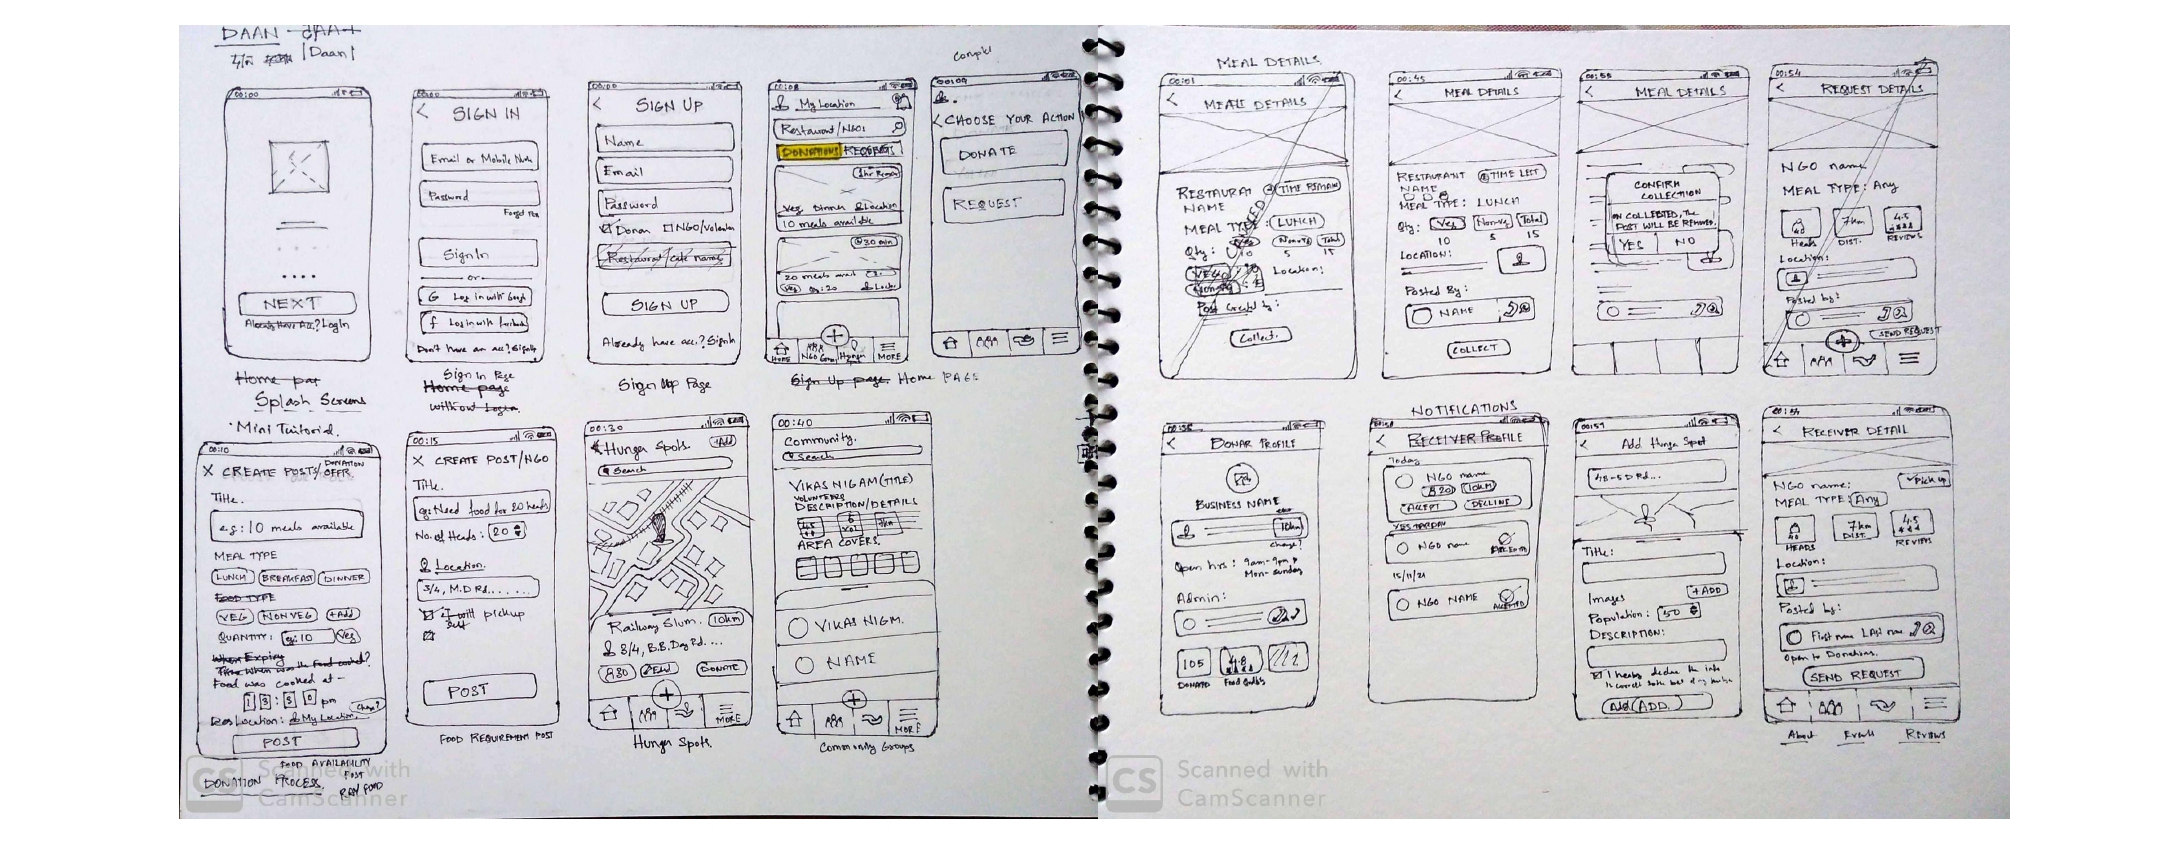 DAAN
|Daan|
00:00
NEXT
Already Have Acc.? LogIn
Splash Screens
Mini Tutorial.
00:00
< SIGN IN
Email or Mobile
Password
SignIn
or
G Log in with Google
f Log in with facebook
Don't have an acc.? SignUp
Sign In Page
Home page
without Login.
00:00
<
SIGN UP
Name
Email
Password
Donar NGO/Volunteer
Restaurant/cafe name
SIGN UP
Already have acc.? SignIn
Sign Up Page
My Location
Restaurant/NGOs
DONATIONS REQUESTS
1hr Remain
Veg Dinner Location
10 meals available
30 min
20 meals avail
Veg
HOME
NGO
Hunger
MORE
Sign Up page. HOME PAGE
< CHOOSE YOUR ACTION
DONATE
REQUEST
00:10
X CREATE POSTS/ DONATION OFFR.
Title.
eg: 10 meals available
MEAL TYPE
LUNCH BREAKFAST DINNER
FOOD TYPE
VEG NON VEG +Add
QUANTITY: eg: 10 Veg
When Expiry
Food was cooked at -
pm
Change?
Location: My Location.
POST
FOOD AVAILABILITY
POST
DONATION PROCESS.
RAW FOOD
00:15
X CREATE POST/NGO
Title.
eg: Need food for 20 heads
No. of Heads: 20
Location.
3/4, M.D Rd......
I will pickup
POST
FOOD REQUIREMENT POST
00:30
Hunger Spots. +Add
Search
Railway Slum. 10km
3/4, B.B.Day Rd....
DONATE
MORE
Hunger Spots.
00:40
Community.
Search
VIKAS NIGAM(TITLE)
VOLUNTEERS
DESCRIPTION/DETAILS
7km
AREA COVERS.
VIKAS NIGM.
NAME
MORE
Community Groups
MEAL DETAILS
<
MEALE DETAILS
RESTAURAT TIME REMAIN
NAME
MEAL TYPE: LUNCH
Qty: Total
10 5 15
VEG Location:
Collect.
00:45
< MEAL DETAILS
RESTAURANT TIME LEFT
NAME
MEAL TYPE: LUNCH
Qty: Veg Nonveg Total
10 5 15
LOCATION:
Posted By:
NAME
COLLECT
< MEAL DETAILS
CONFIRM
COLLECTION
ON COLLECTED, THE
POST WILL BE REMOVED.
YES NO
00:54
< REQUEST DETAILS
NGO name
MEAL TYPE: Any
7km 4.5
Heads DIST. REVIEWS
Location:
Posted by:
SEND REQUEST
< DONAR PROFILE
BUSINESS NAME
10km
change?
Open hrs: 9am-9pm
Mon-sunday
Admin:
105 4.8
DONATED Food Quality
NOTIFICATIONS
< RECEIVER PROFILE
Today
NGO name
20 10km
ACCEPT DECLINE
YESTARDAY
NGO name
15/11/21
NGO NAME ACCEPTED
00:59
< Add Hunger Spot
Title:
Images +ADD
Population: 50
DESCRIPTION:
ADD.
< RECEIVER DETAIL
NGO name: Pick up
MEAL TYPE: Any
7km 4.5
HEADS DIST. REVIEWS
Location:
Posted by:
First name LAST name
Open to Donations.
SEND REQUEST
About Events Reviews
CS Scanned with
CamScanner
CS Scanned with
CamScanner